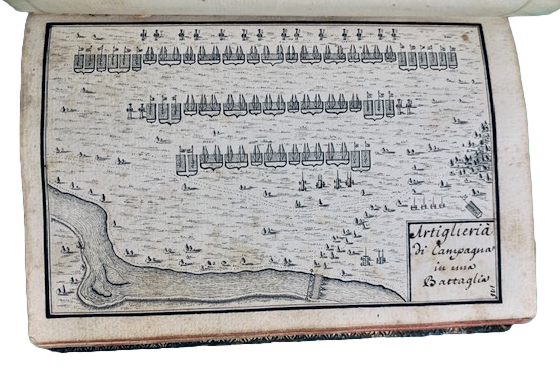 Artiglieria
di Campagna
in una
Battaglia